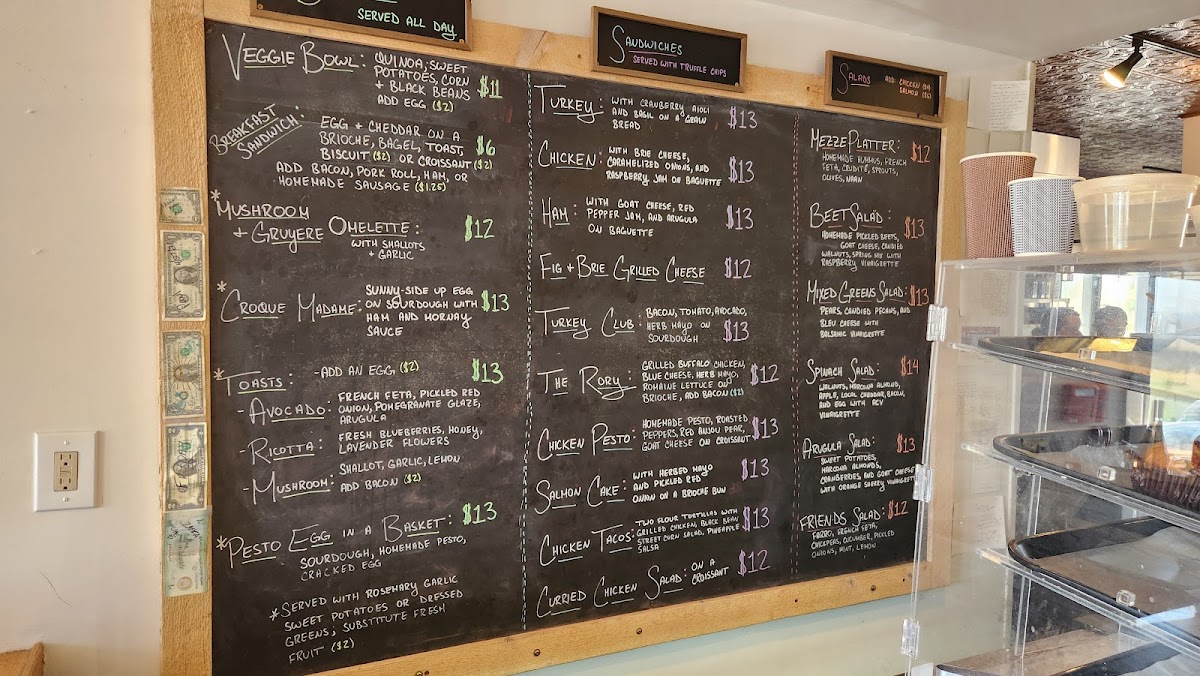 SERVED ALL DAY
VEGGIE BOWL: QUINOA, SWEET
POTATOES, CORN
+ BLACK BEANS
ADD EGG ($2)
$11
BREAKFAST
SANDWICH:
EGG + CHEDDAR ON A
BRIOCHE, BAGEL, TOAST,
BISCUIT ($2) OR CROISSANT ($2)
$6
ADD BACON, PORK ROLL, HAM, OR
HOMEMADE SAUSAGE ($1.25)
*MUSHROOM
+ GRUYERE OMELETTE: $12
WITH SHALLOTS
+ GARLIC
*CROQUE MADAME: SUNNY-SIDE UP EGG
ON SOURDOUGH WITH
HAM AND MORNAY
SAUCE
$13
*TOASTS: -ADD AN EGG ($2) $13
-AVOCADO: FRENCH FETA, PICKLED RED
ONION, POMEGRANATE GLAZE,
ARUGULA
-RICOTTA: FRESH BLUEBERRIES, HONEY,
LAVENDER FLOWERS
-MUSHROOM: SHALLOT, GARLIC, LEMON
ADD BACON ($2)
*PESTO EGG IN A BASKET: $13
SOURDOUGH, HOMEMADE PESTO,
CRACKED EGG
*SERVED WITH ROSEMARY GARLIC
SWEET POTATOES OR DRESSED
GREENS; SUBSTITUTE FRESH
FRUIT ($2)
SANDWICHES
SERVED WITH TRUFFLE CHIPS
TURKEY: WITH CRANBERRY AIOLI
AND BASIL ON A GRAIN
BREAD
$13
CHICKEN: WITH BRIE CHEESE,
CARAMELIZED ONIONS, AND
RASPBERRY JAM ON BAGUETTE
$13
HAM: WITH GOAT CHEESE, RED
PEPPER JAM, AND ARUGULA
ON BAGUETTE
$13
FIG + BRIE GRILLED CHEESE $12
TURKEY CLUB: BACON, TOMATO, AVOCADO,
HERB MAYO ON
SOURDOUGH
$13
THE RORY: GRILLED BUFFALO CHICKEN,
BLUE CHEESE, HERB MAYO,
ROMAINE LETTUCE ON
BRIOCHE, ADD BACON ($2)
$12
CHICKEN PESTO: HOMEMADE PESTO, ROASTED
PEPPERS, RED ANJOU PEAR,
GOAT CHEESE ON CROISSANT
$13
SALMON CAKE: WITH HERBED MAYO
AND PICKLED RED
ONION ON A BRIOCHE BUN
$13
CHICKEN TACOS: TWO FLOUR TORTILLAS WITH
GRILLED CHICKEN, BLACK BEAN
STREET CORN SALAD, PINEAPPLE
SALSA
$13
CURRIED CHICKEN SALAD: ON A
CROISSANT
$12
SALADS
ADD: CHICKEN ($4)
SALMON ($6)
MEZZE PLATTER: $12
HOMEMADE HUMMUS, FRENCH
FETA, CRUDITÉ, SPROUTS,
OLIVES, NAAN
BEET SALAD: $13
HOMEMADE PICKLED BEETS,
GOAT CHEESE, CANDIED
WALNUTS, SPRING MIX WITH
RASPBERRY VINAIGRETTE
MIXED GREENS SALAD: $13
PEARS, CANDIED PECANS, AND
BLEU CHEESE WITH
BALSAMIC VINAIGRETTE
SPINACH SALAD: $14
WALNUTS, MARCONA ALMOND,
APPLE, LOCAL CHEDDAR, BACON,
AND EGG WITH ACV
VINAIGRETTE
ARUGULA SALAD: $13
SWEET POTATOES,
MARCONA ALMONDS,
CRANBERRIES, AND GOAT CHEESE
WITH ORANGE SHERRY VINAIGRETTE
FRIENDS SALAD: $12
FARRO, FRENCH FETA,
CHICKPEAS, CUCUMBER, PICKLED
ONIONS, MINT, LEMON